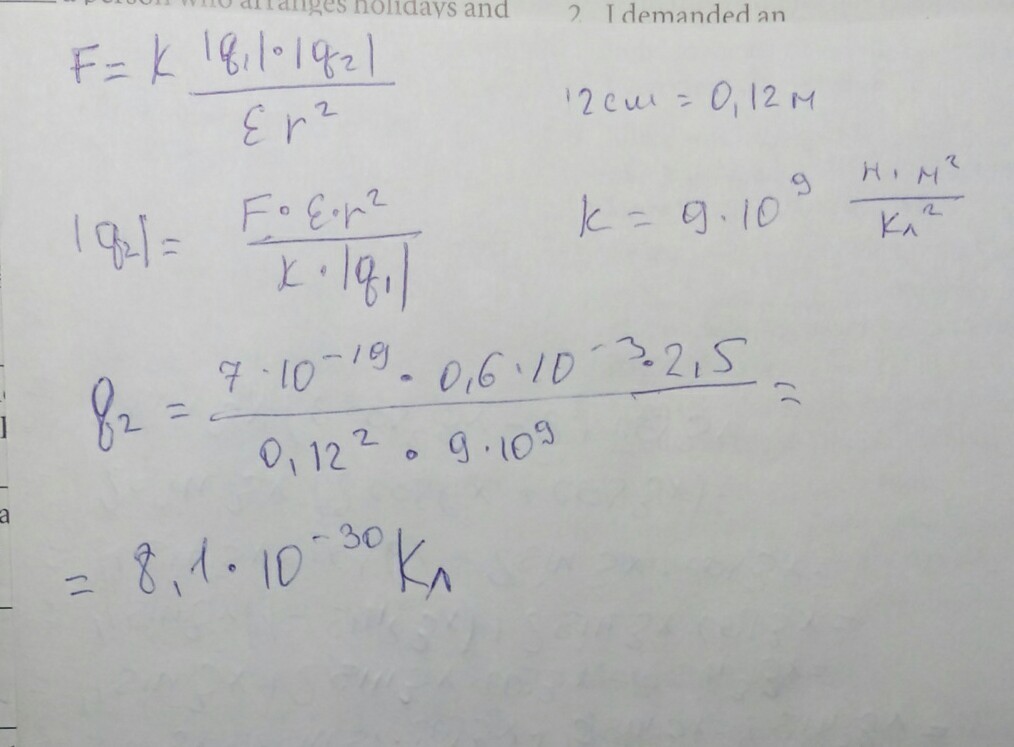 a person who arranges holidays and
2. I demanded an
F = K |q₁|·|q₂| / εr²
12см = 0,12м
|q₂| = F·ε·r² / K·|q₁|
k = 9·10⁹ Н·м² / Кл²
q₂ = 7·10⁻¹⁹ · 0,6·10⁻³·2,5 / 0,12² · 9·10⁹ =
= 8,1·10⁻³⁰ Кл